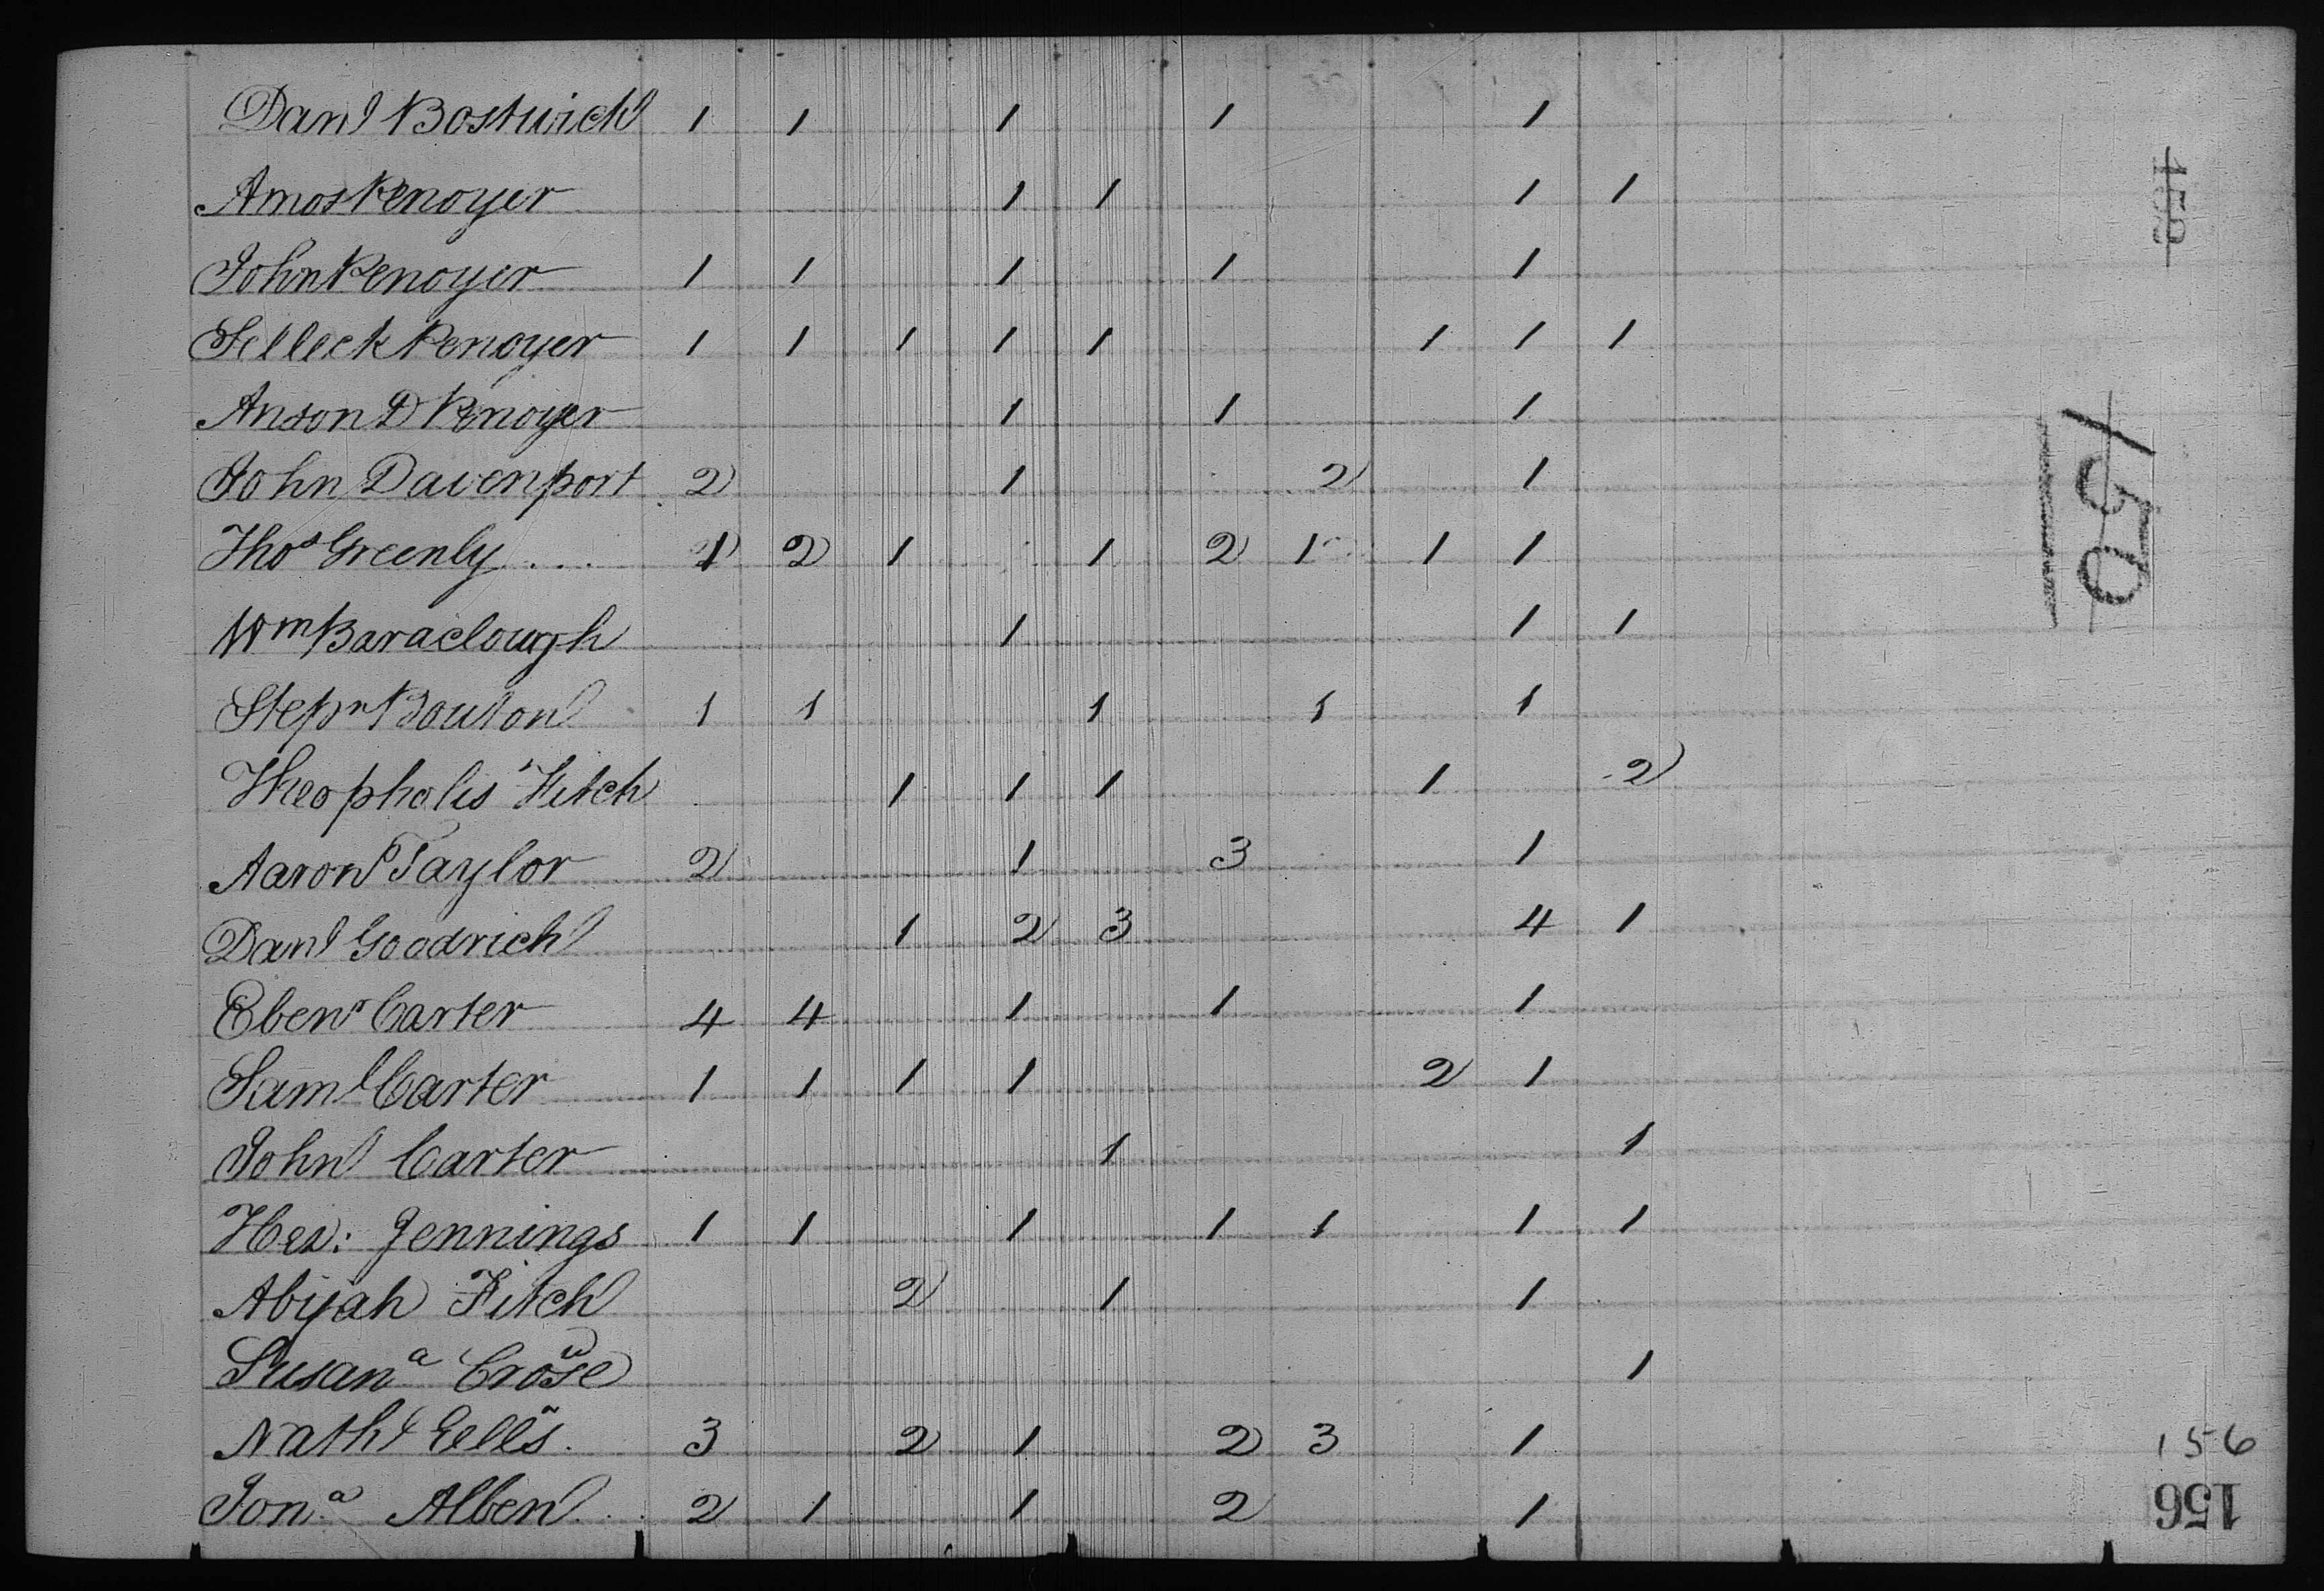 Danl Bostwick 1 1 1 1 1
Amos Penoyer 1 1 1 1
John Penoyer 1 1 1 1 1
Selleck Penoyer 1 1 1 1 1 1 1 1
Anson D Penoyer 1 1 1
John Davenport 2 1 2 1
Thos Greenly ... 1 2 1 1 2 1 1 1
Wm Baraclough 1 1 1
Stepn Bouton 1 1 1 1 1
Theopholis Fitch 1 1 1 1 2
Aaron Taylor 2 1 3 1
Danl Goodrich 1 2 3 4 1
Ebenr Carter 4 4 1 1 1
Saml Carter 1 1 1 1 2 1
John Carter 1 1
Hez: Jennings 1 1 1 1 1 1 1
Abijah Fitch 2 1 1
Susana 1
Nathl Eells 3 2 1 2 3 1
Jona Alben 2 1 1 2 1
150
156
156